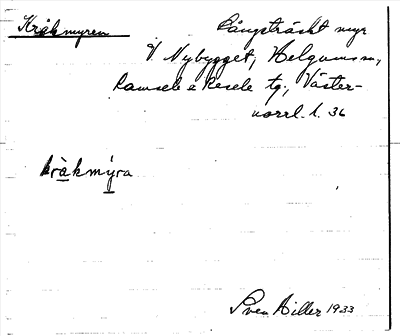 Kråkmyren
Långsträckt myr
V Nybygget, Helgums sn,
Ramsele o Resele tg., Väster-
norrl. l. 36
kràkmýra
Sven Hiller 1933